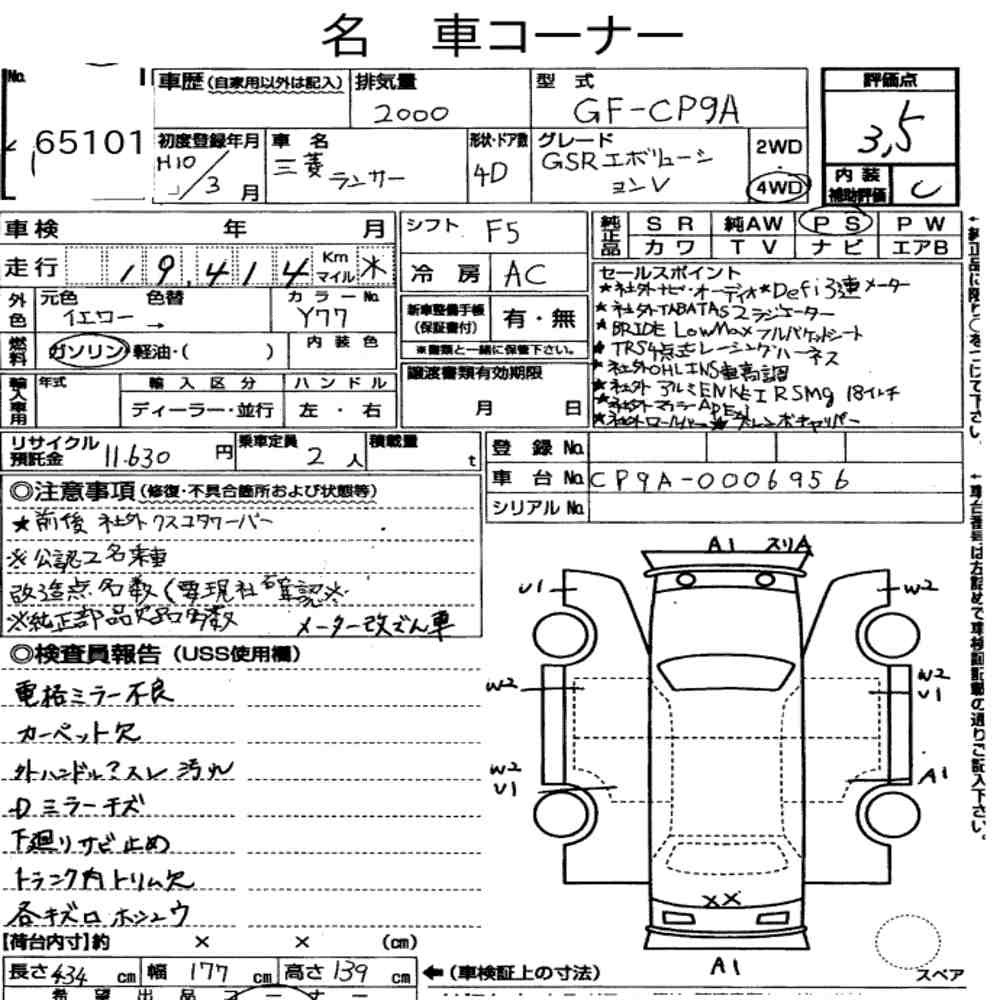 名 車コーナー
No.
65101
車歴(自家用以外は記入)
排気量
2000
型 式
GF-CP9A
評価点
3,5
初度登録年月
H10/3月
車 名
三菱 ランサー
形状・ドア数
4D
グレード
GSRエボリューションV
2WD
・
4WD
内装
補助評価
C
車検 年 月
シフト F5
純正品
SR 純AW PS PW
カワ TV ナビ エアB
走行 19,414 Km マイル ※
冷房 AC
セールスポイント
★社外ナビ・オーディオ★Defi 3連メーター
★社外TABATASラジエーター
★BRIDE LowMaxフルバケットシート
★TRS4点式レーシングハーネス
★社外OHLINS車高調
★社外アルミENKEI RSMg 18インチ
★社外マフラー
★社外ロールバー★ブレンボキャリパー
外色
元色 色替
イエロー →
カラーNo.
Y77
新車整備手帳
(保証書付)
有・無
※書類と一緒に保管下さい。
燃料
ガソリン・軽油・( )
内装色
輸入車用
年式
輸入区分
ディーラー・並行
ハンドル
左・右
譲渡書類有効期限
月 日
リサイクル
預託金 11.630 円
乗車定員
2人
積載量
t
登録No.
車台No. CP9A-0006956
シリアルNo.
◎注意事項(修復・不具合箇所および状態等)
★前後 社外クスコタワーバー
※公認2名乗車
改造点多数(電現社確認※
※純正部品欠品多数 メーター改ざん車
◎検査員報告(USS使用欄)
電格ミラー不良
カーペット欠
外ハンドル?スレ 汚れ
Dミラーキズ
下廻りサビ止め
トランク内トリム欠
各キズロホシュウ
【荷台内寸】約 × × (cm)
長さ 434 cm 幅 177 cm 高さ 139 cm
←(車検証上の寸法)
A1 スリA
U1
W2
W2
W2
U1
W2
U1
A1
XX
A1
スペア
←車台番号は右詰めで車検証記載の通りご記入下さい。